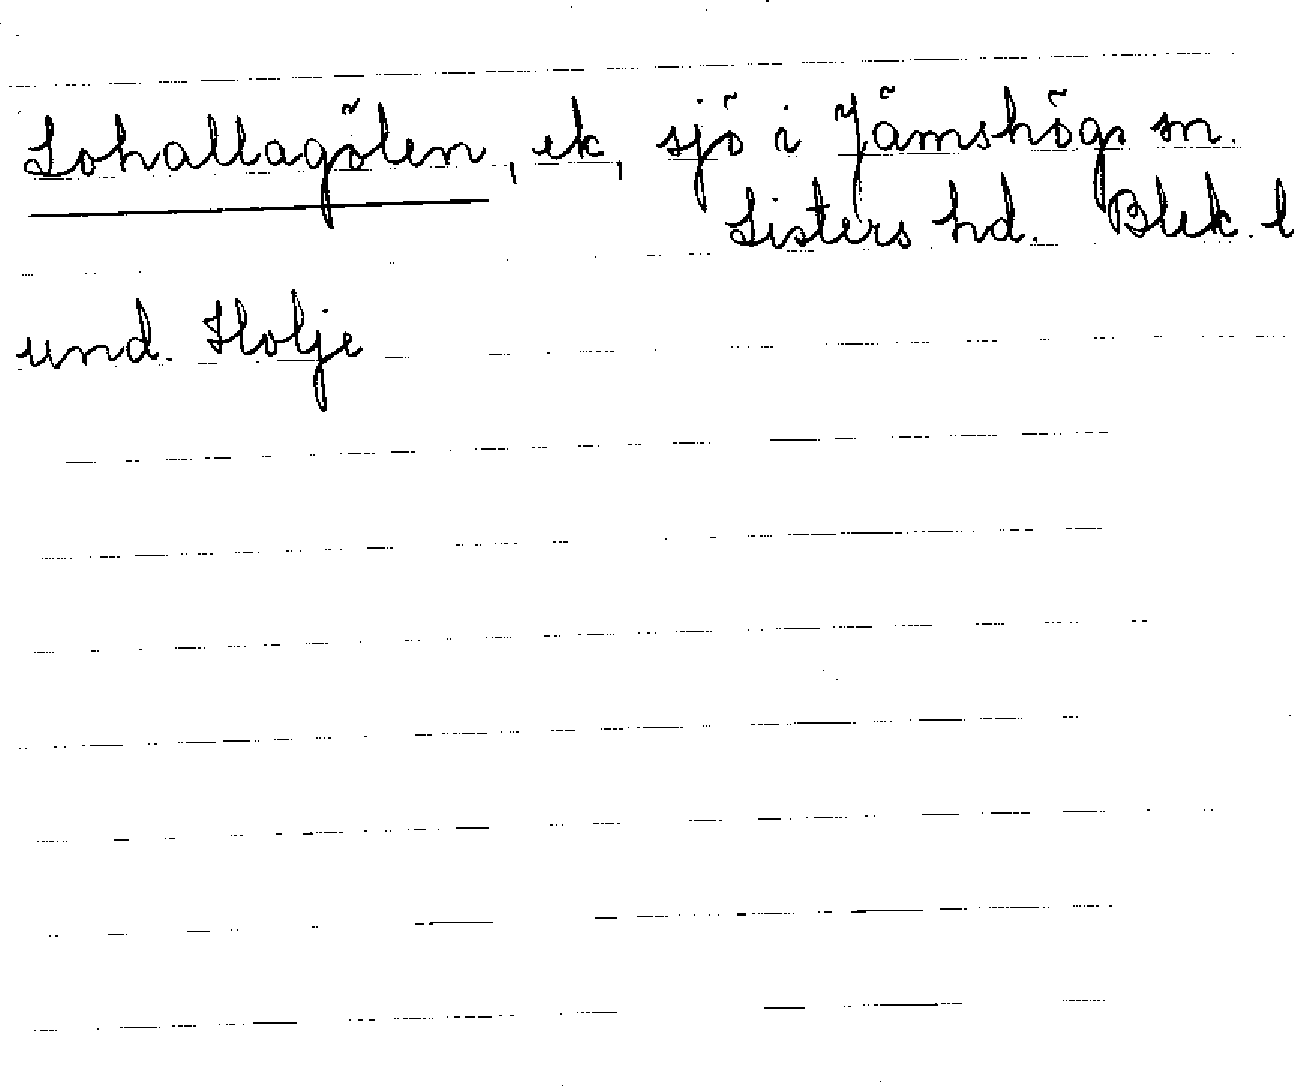 Lohallagölen, ek, sjö i Jämshögs sn.
Listers hd. Blek. l
und. Holje